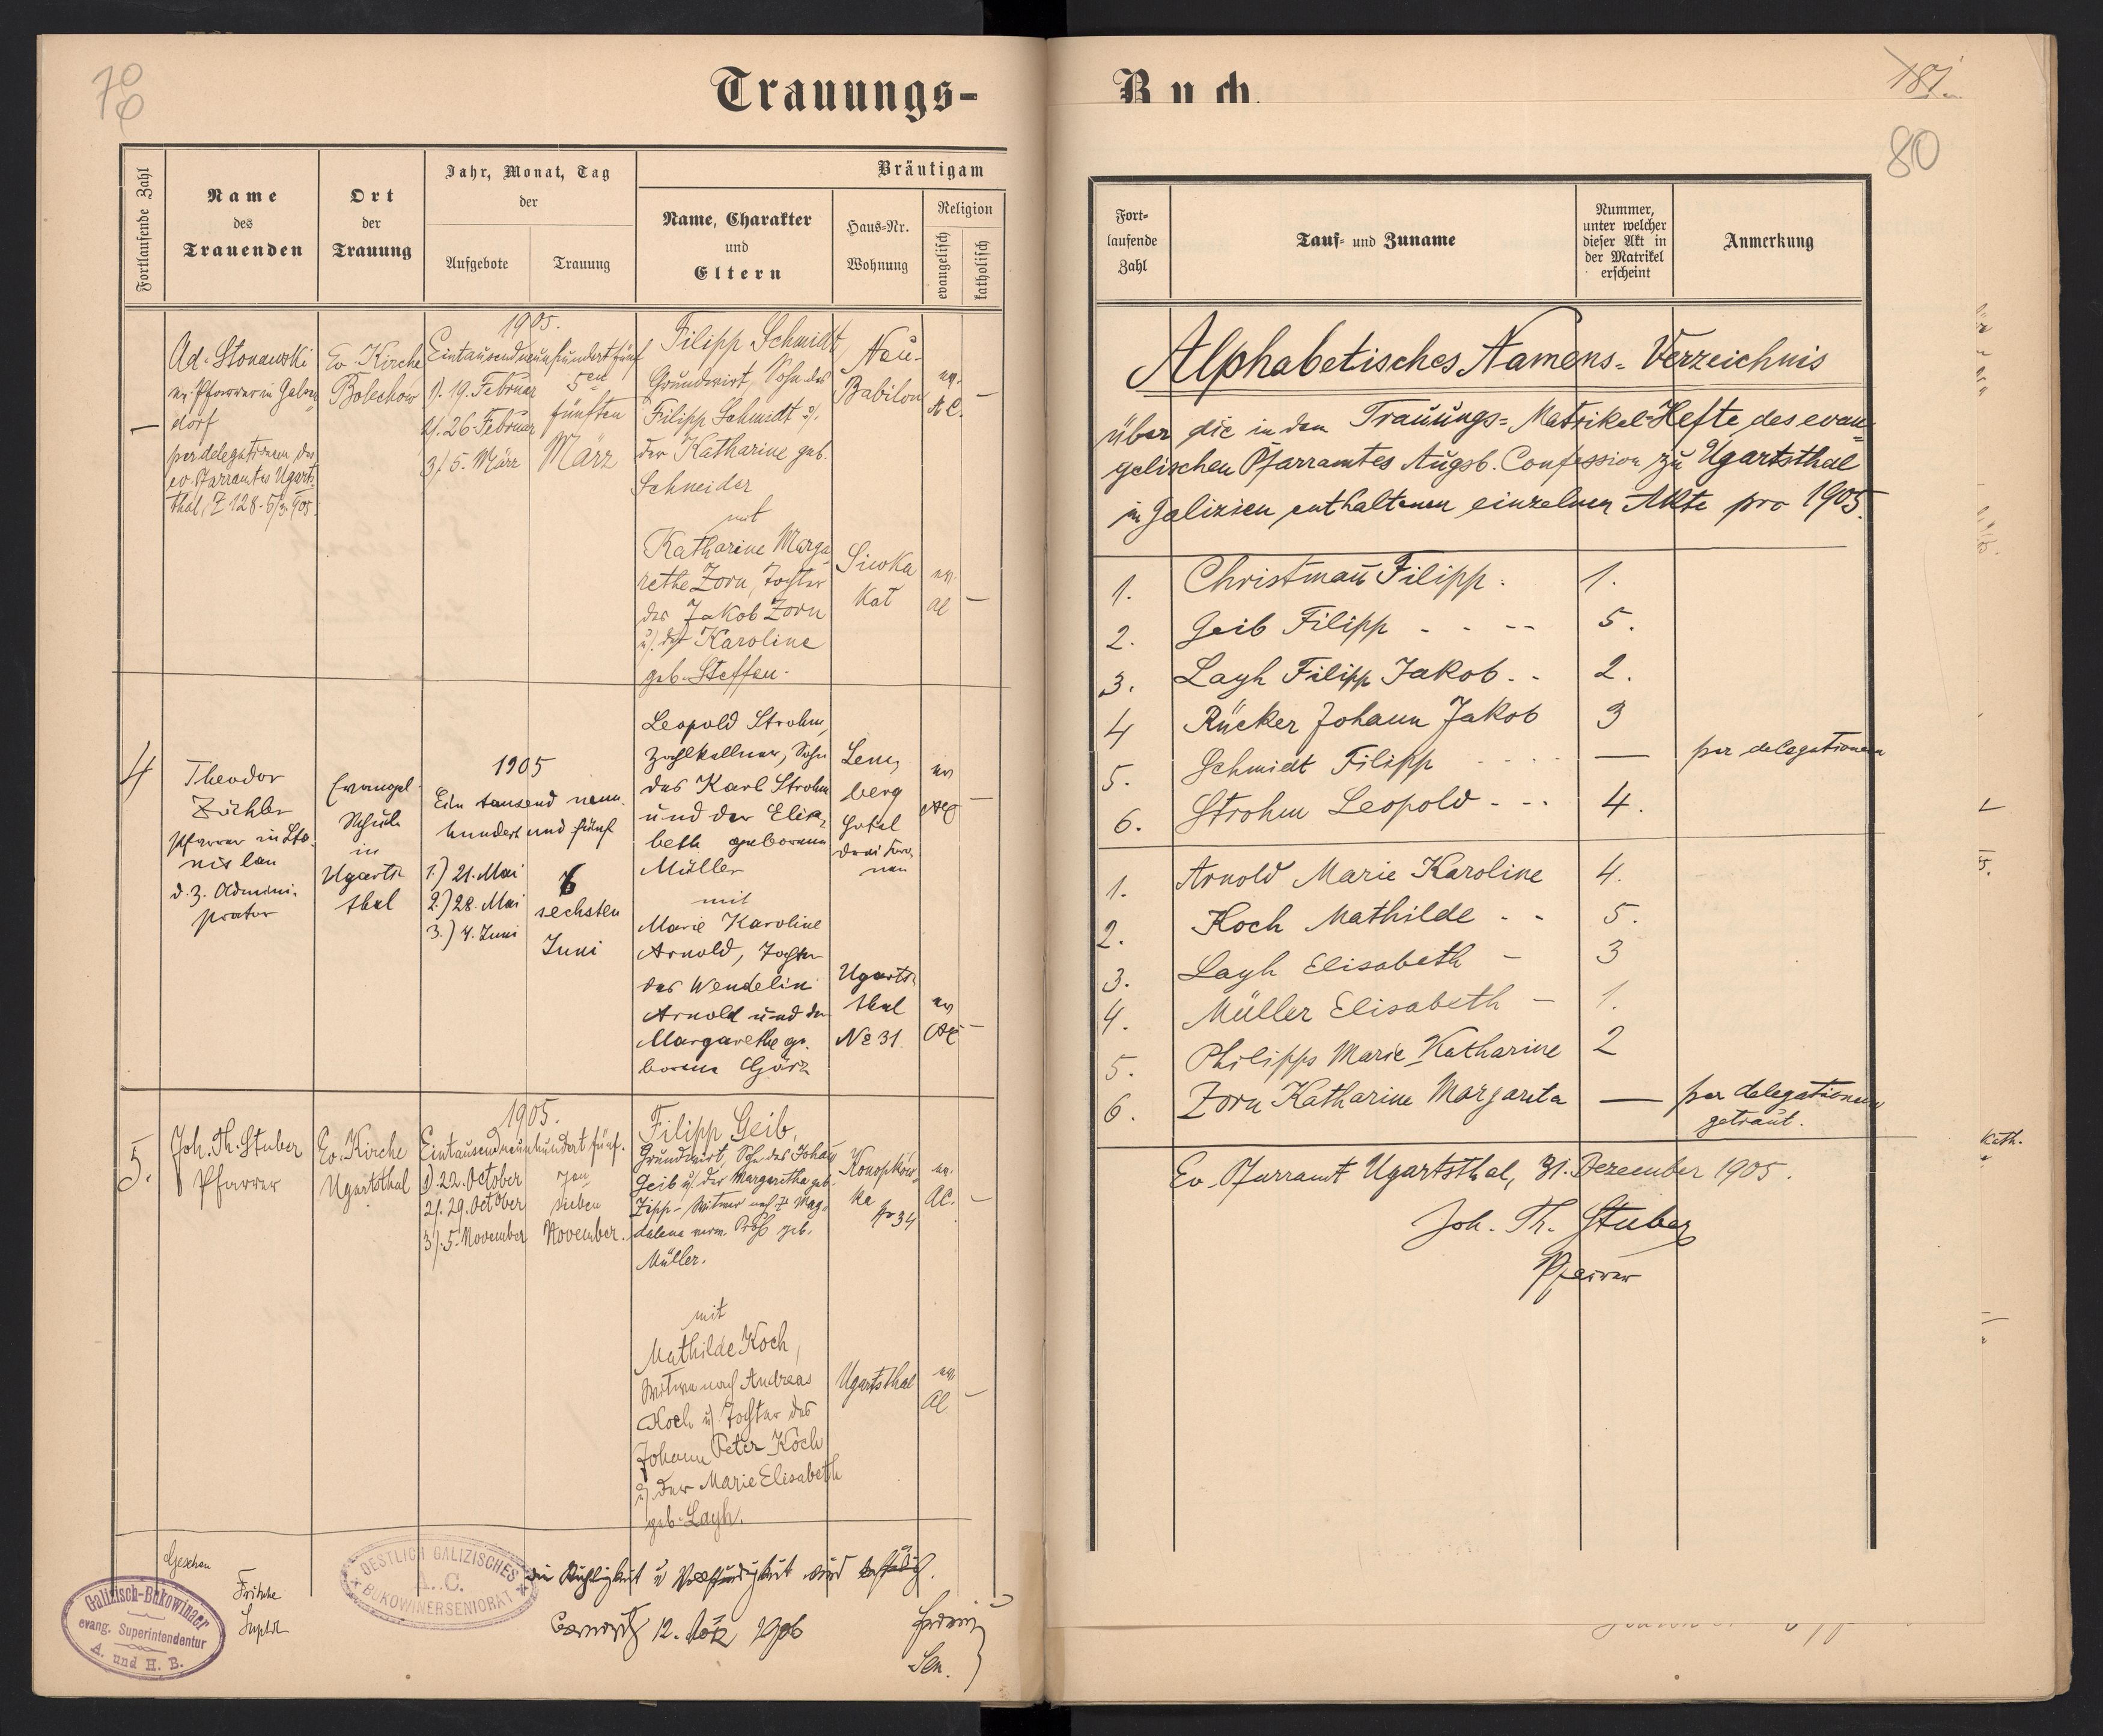 70
Trauungs-
Fortlaufende Zahl
Name
des
Trauenden
Ort
der
Trauung
Jahr, Monat, Tag
der
Aufgebote
Trauung
Bräutigam
Name, Charakter
und
Eltern
Haus-Nr.
Wohnung
Religion
evangelisch
katholisch
—
Ad. Stonawski
ev. Pfarrer in Gelsen
dorf
per delegationem des
ev. Pfarramtes Ugarts-
thal, Z 128 - 5/3. 905.
Ev. Kirche
Bolechów
1905.
Eintausendneunhundertfünf
1). 19. Februar
2). 26. Februar
3). 5. März
5en
fünften
März
Filipp Schmidt,
Grundwirt, Sohn des
Filipp Schmidt u.
der Katharine geb.
Schneider
mit
Katharine Marga-
rethe Zorn, Tochter
des Jakob Zorn
u. der Karoline
geb. Steffen.
Neu-
Babilon
ev.
A C.
—
Siwka
Kat
ev.
AC
—
4
Theodor
Zöckler
Pfarrer in Sta-
nislau
d. z. Admini-
strator
Evangel.
Schule
in
Ugarts-
thal
1905
Ein tausend neun-
hundert und fünf
1.) 21. Mai
2.) 28. Mai
3.) 4. Juni
6
sechsten
Juni
Leopold Strohm,
Zahlkellner, Sohn
des Karl Strohm
und der Elisa-
beth geborene
Müller
mit
Marie Karoline
Arnold, Tochter
des Wendelin
Arnold und der
Margarethe ge-
borene Görz
Lem-
berg
Hotel
drei Kro-
nen
ev
AC
—
Ugarts-
thal
No 31.
ev
AC
—
5.
Joh. Th. Stuber
Pfarrer
Ev. Kirche
Ugartsthal
1905.
Eintausendneunhundert fünf.
1). 22. October
2). 29. October
3). 5. November
7en
sieben
November.
Filipp Geib,
Grundwirt, Sohn des Johann
Geib u. der Margaretha geb.
Zipp - Witwer nach † Mag-
dalena verw. geb.
Müller.
mit
Mathilde Koch,
Witwe nach Andreas
Koch u. Tochter des
Johann Peter Koch
u. der Marie Elisabeth
geb. Layh.
Konopków-
ka
Nr 34
ev.
AC.
—
Ugartsthal
ev.
AC
—
Gesehen
Fritsche
Suptdt
Galizisch-Bukowinaer
evang. Superintendentur
A. und H. B.
OESTLICH GALIZISCHES
A. C.
BUKOWINERSENIORAT
die Richtigkeit u Vollständigkeit wird bestätigt.
12. März 1906
Sen.
Buch.
181.
80
Fort-
laufende
Zahl
Tauf- und Zuname
Nummer,
unter welcher
dieser Akt in
der Matrikel
erscheint
Anmerkung
Alphabetisches Namens-Verzeichnis
über die in den Trauungs-Matrikel-Hefte des evan-
gelischen Pfarramtes Augsb. Confession zu Ugartsthal
in Galizien enthaltenen einzelnen Akte pro 1905.
1. Christmann Filipp. 1.
2. Geib Filipp - - -- 5.
3. Layh Filipp Jakob. - 2.
4 Rücker Johann Jakob 3
5. Schmidt Filipp - - - - — per delegationem
6. Strohm Leopold - - - 4.
1. Arnold Marie Karoline 4.
2. Koch Mathilde - - 5.
3. Layh Elisabeth - 3
4. Müller Elisabeth - 1.
5. Philipps Marie Katharine 2
6. Zorn Katharine Margareta — per delegationem
getraut.
Ev. Pfarramt Ugartsthal, 31. Dezember 1905.
Joh. Th. Stuber
Pfarrer
Kath.